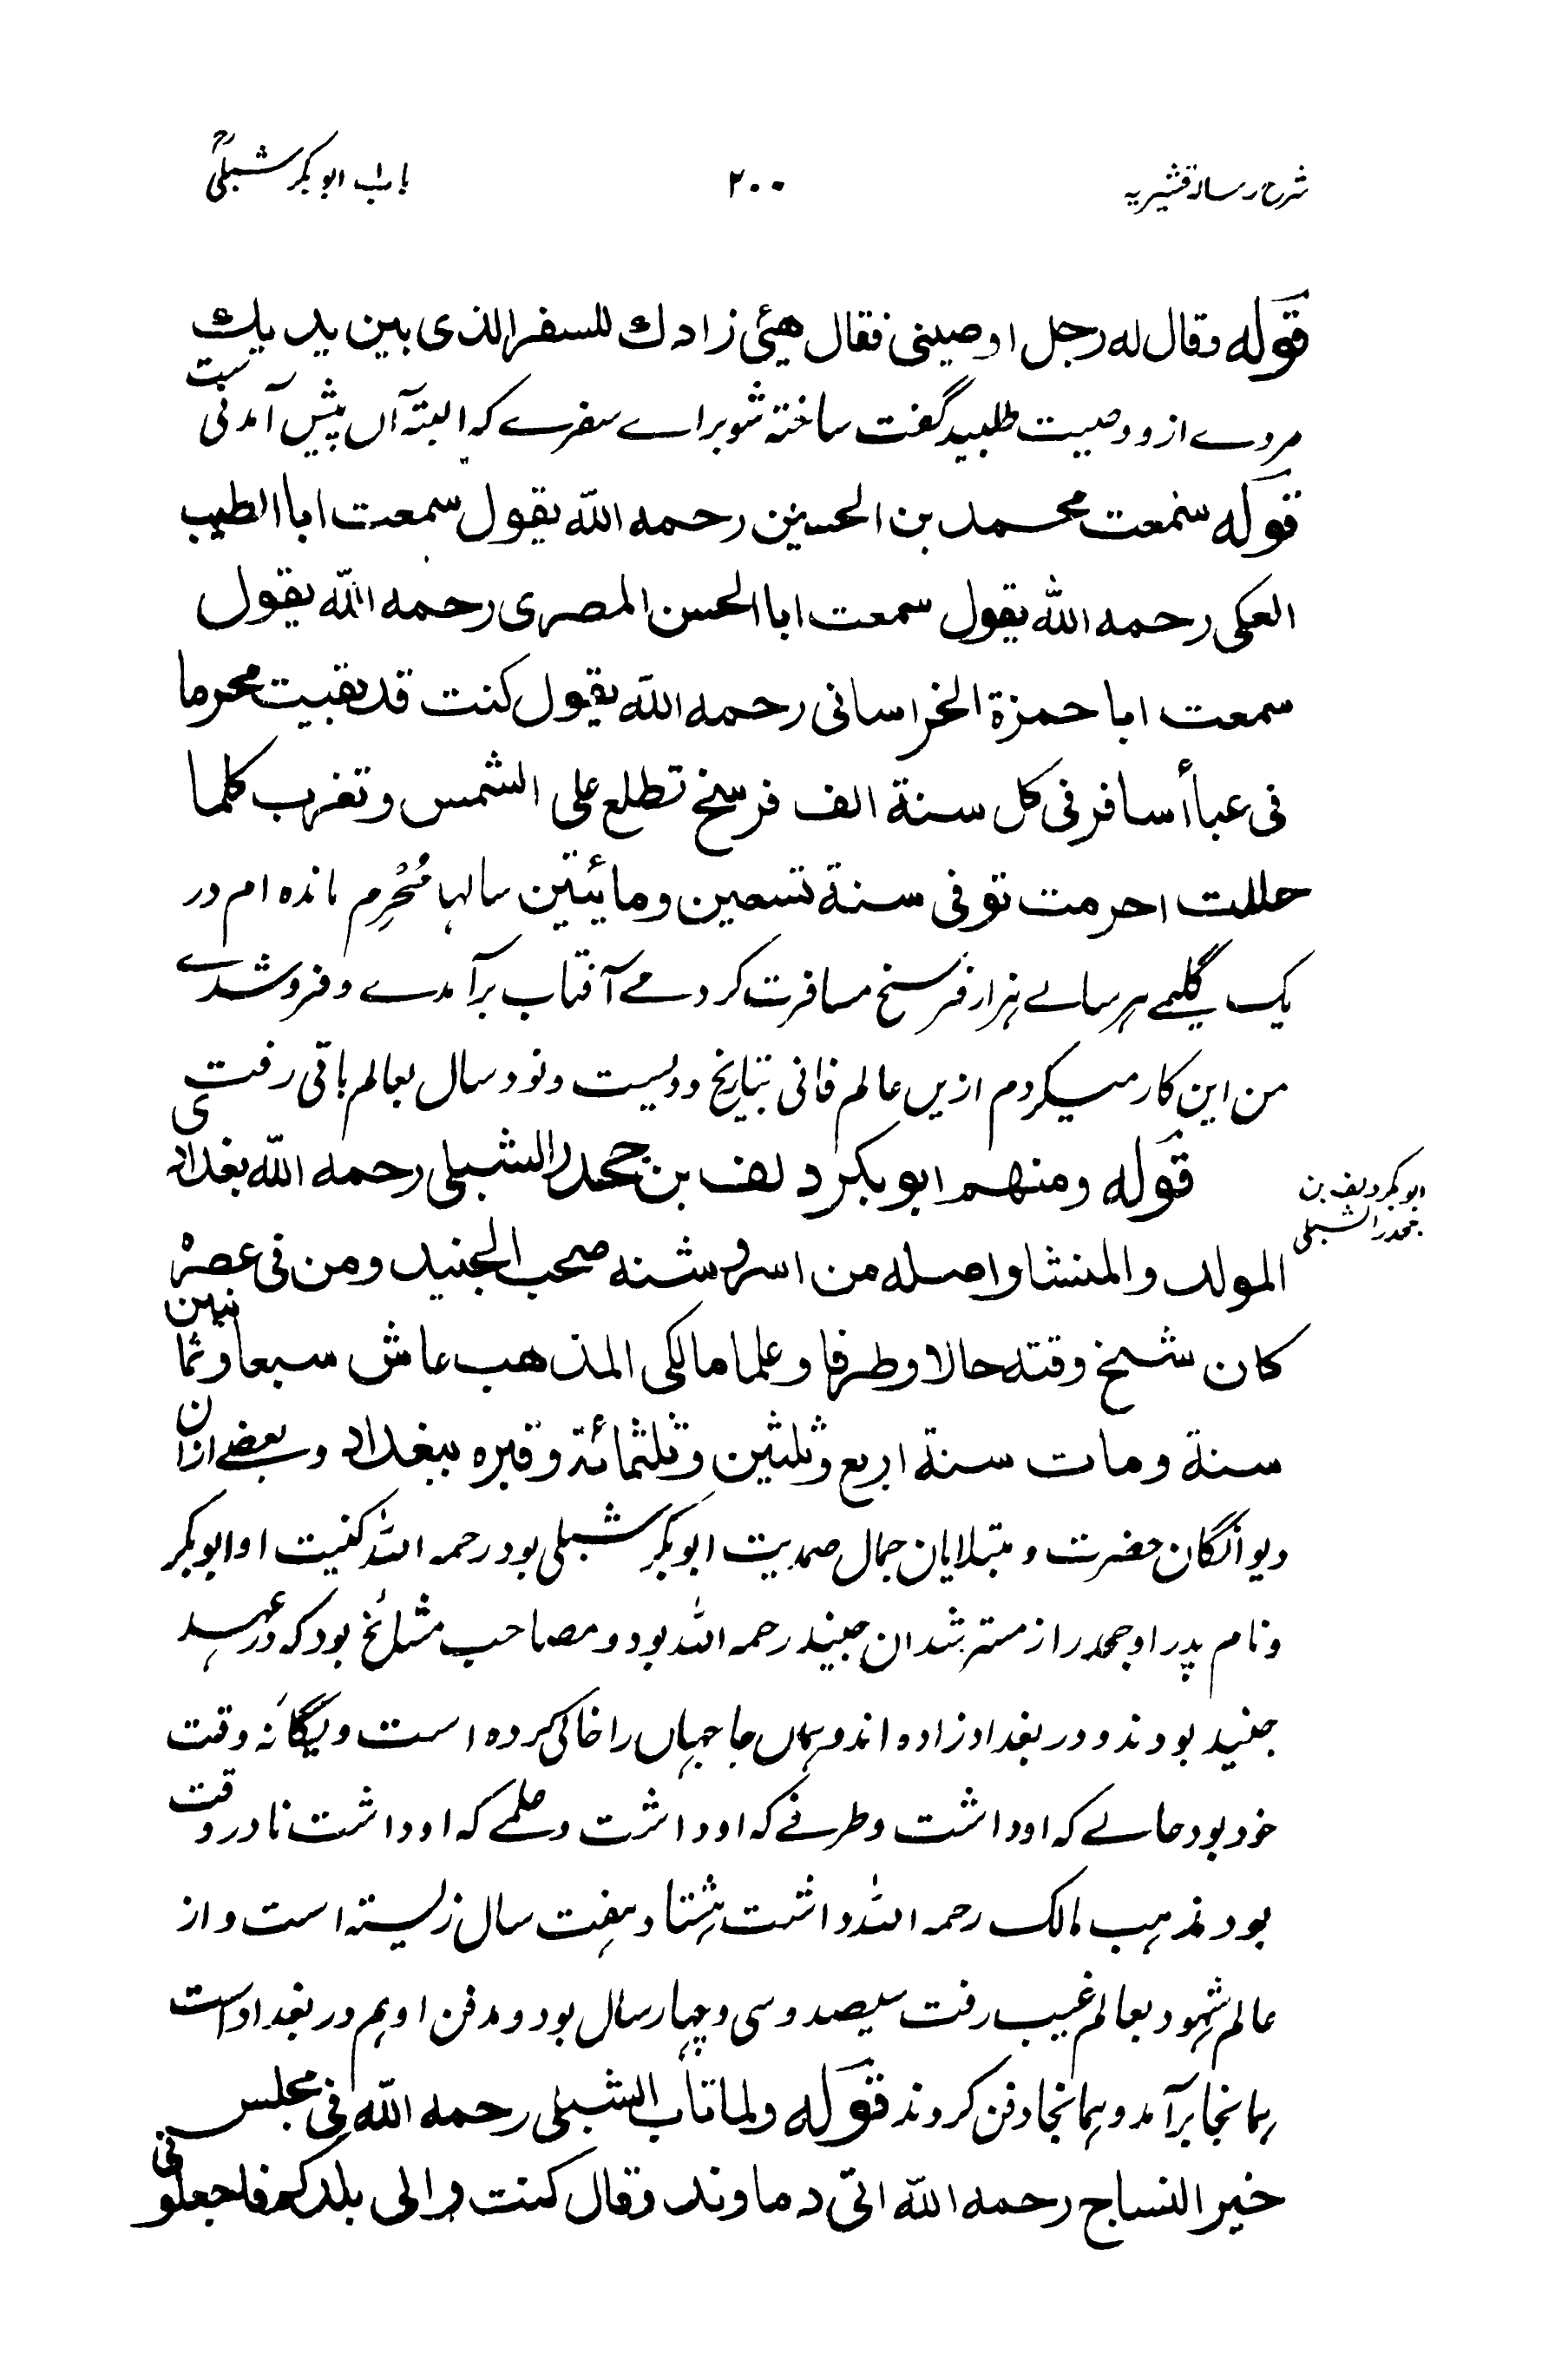 شرح رسالہ قشیریہ ۲۰۰ باب ابو بکر شبلیؒ
قولہ وقال لہ رجل اوصینی فقال ھیئی زادک للسفر الذی بین یدیک
مردے ازو وصیت طلبید گفت ساختہ شو براے سفرے کہ البتہ آں پیش آمدنی ست
قولہ سمعت محمد بن الحسین رحمہ اللہ یقول سمعت ابا الطیب
العکی رحمہ اللہ یقول سمعت ابا الحسن المصری رحمہ اللہ یقول
سمعت ابا حمزۃ الخراسانی رحمہ اللہ یقول کنت قد بقیت محرما
فی عبأ أسافر فی کل سنۃ الف فرسخ تطلع علی الشمس وتغرب کلما
حللت احرمت توفی سنۃ تسعین ومائیتین سالہا مُحْرِم ماندہ ام در
یک گلیمے ہر سالے ہزار فرسخ مسافرت کردمے آفتاب برآمدے وفروشدے
من این کار میکردم ازیں عالم فانی بتاریخ دویست ونود سال بعالم باقی رفت
قولہ ومنھم ابو بکر دلف بن جحدر الشبلی رحمہ اللہ بغدادی
ابو بکر دلف بن
جحدر الشبلی
المولد والمنشا واصلہ من اسروشنہ صحب الجنید ومن فی عصرہ
کان شیخ وقتہ حالا وظرفا وعلما مالکی المذھب عاش سبعا وثمانین
سنۃ ومات سنۃ اربع وثلثین وثلثمائۃ وقبرہ ببغداد وبعضے ازان
دیوانگان حضرت ومبتلایان جمال صمدیت ابو بکر شبلی بود رحمہ اللہ کنیت او ابو بکر
ونام پدر او جحدر از مسترشدان جنید رحمہ اللہ بود ومصاحب مشائخ بود کہ در عہد
جنید بودند ودر بغداد زادہ اند وہماں جا جہاں را خالی کردہ است ویگانۂ وقت
خود بود حالے کہ او داشت وظرفے کہ او داشت وعلمے کہ او داشت نادر وقت
بود مذہب مالک رحمہ اللہ داشت ہشتاد وہفت سال زیستہ است واز
عالم شہود بعالم غیب رفت سیصد وسی وچہار سال بود ومدفن او ہم در بغداد است
ہمانجا برآمد وہمانجا دفن کردند قولہ ولما تاب الشبلی رحمہ اللہ فی مجلس
خیر النساج رحمہ اللہ اتی دماوند وقال کنت والی بلدکم فاجعلونی